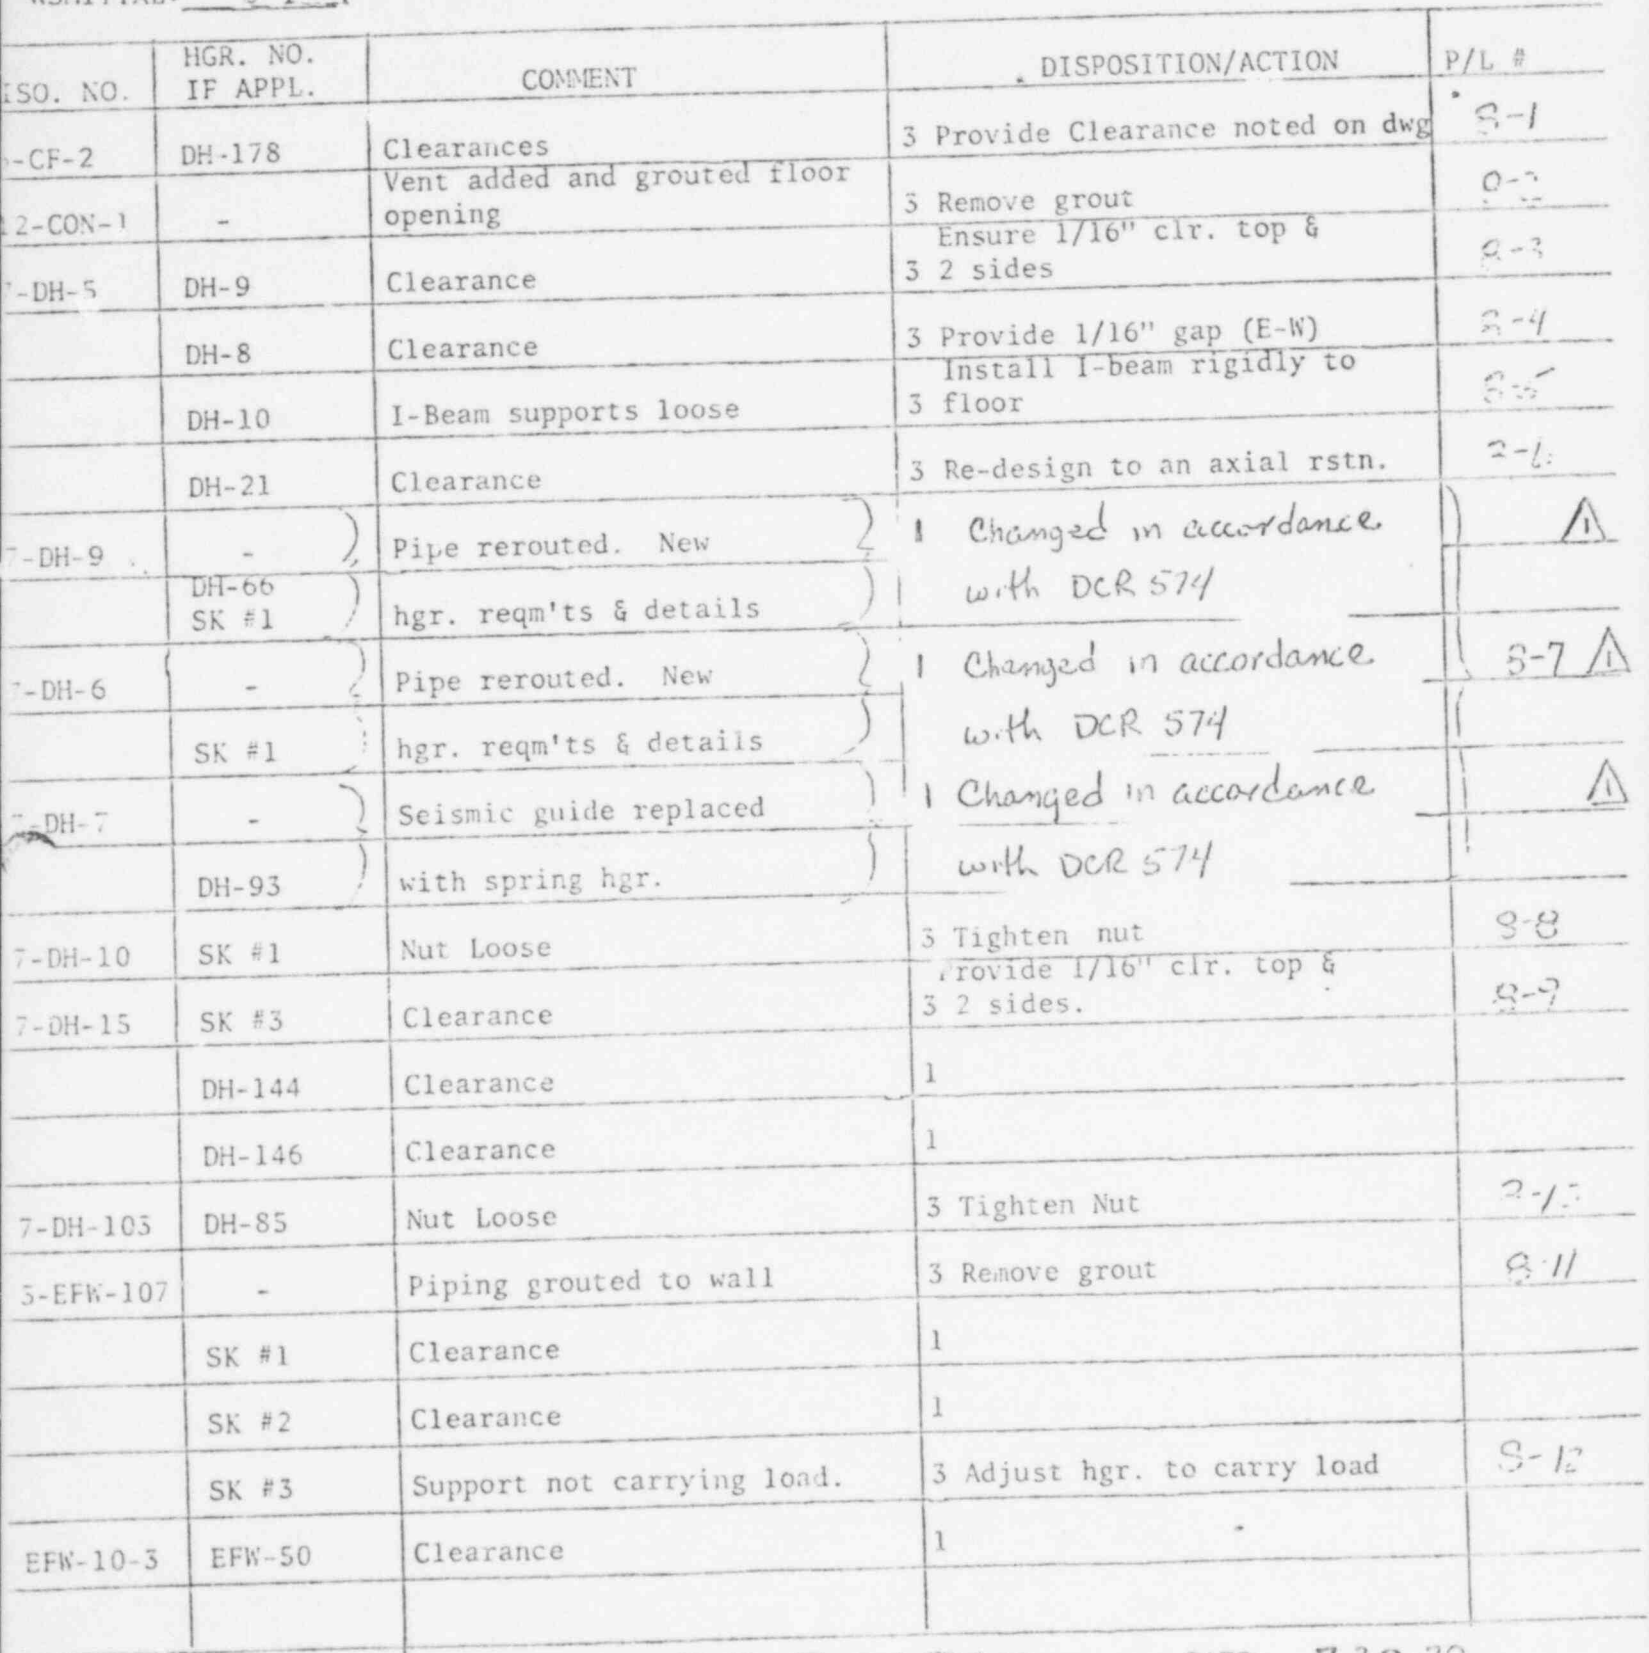 HGR. NO.
ISO. NO. IF APPL. COMMENT DISPOSITION/ACTION P/L #
-CF-2 DH-178 Clearances 3 Provide Clearance noted on dwg 8-1
Vent added and grouted floor
12-CON-1 - opening 3 Remove grout
Ensure 1/16" clr. top &
-DH-5 DH-9 Clearance 3 2 sides 8-3
DH-8 Clearance 3 Provide 1/16" gap (E-W) 8-4
Install I-beam rigidly to
DH-10 I-Beam supports loose 3 floor 8-5
DH-21 Clearance 3 Re-design to an axial rstn.
7-DH-9 - Pipe rerouted. New 1 Changed in accordance 1
DH-66
SK #1 hgr. reqm'ts & details with DCR 574
-DH-6 - Pipe rerouted. New 1 Changed in accordance 8-7 1
SK #1 hgr. reqm'ts & details with DCR 574
7-DH-7 - Seismic guide replaced 1 Changed in accordance 1
DH-93 with spring hgr. with DCR 574
7-DH-10 SK #1 Nut Loose 3 Tighten nut 8-8
Provide 1/16" clr. top &
7-DH-15 SK #3 Clearance 3 2 sides. 8-9
DH-144 Clearance 1
DH-146 Clearance 1
7-DH-103 DH-85 Nut Loose 3 Tighten Nut
3-EFW-107 - Piping grouted to wall 3 Remove grout 8-11
SK #1 Clearance 1
SK #2 Clearance 1
SK #3 Support not carrying load. 3 Adjust hgr. to carry load 8-12
EFW-10-3 EFW-50 Clearance 1